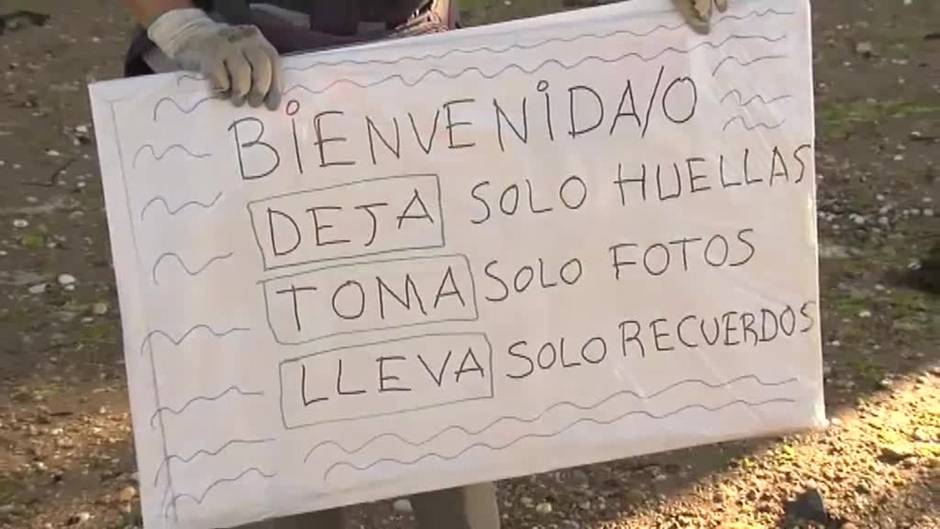 BiENVENiDA/O
DEJA SOLO HUELLAS
TOMA SOLO FOTOS
LLEVA SOLO RECUERDOS